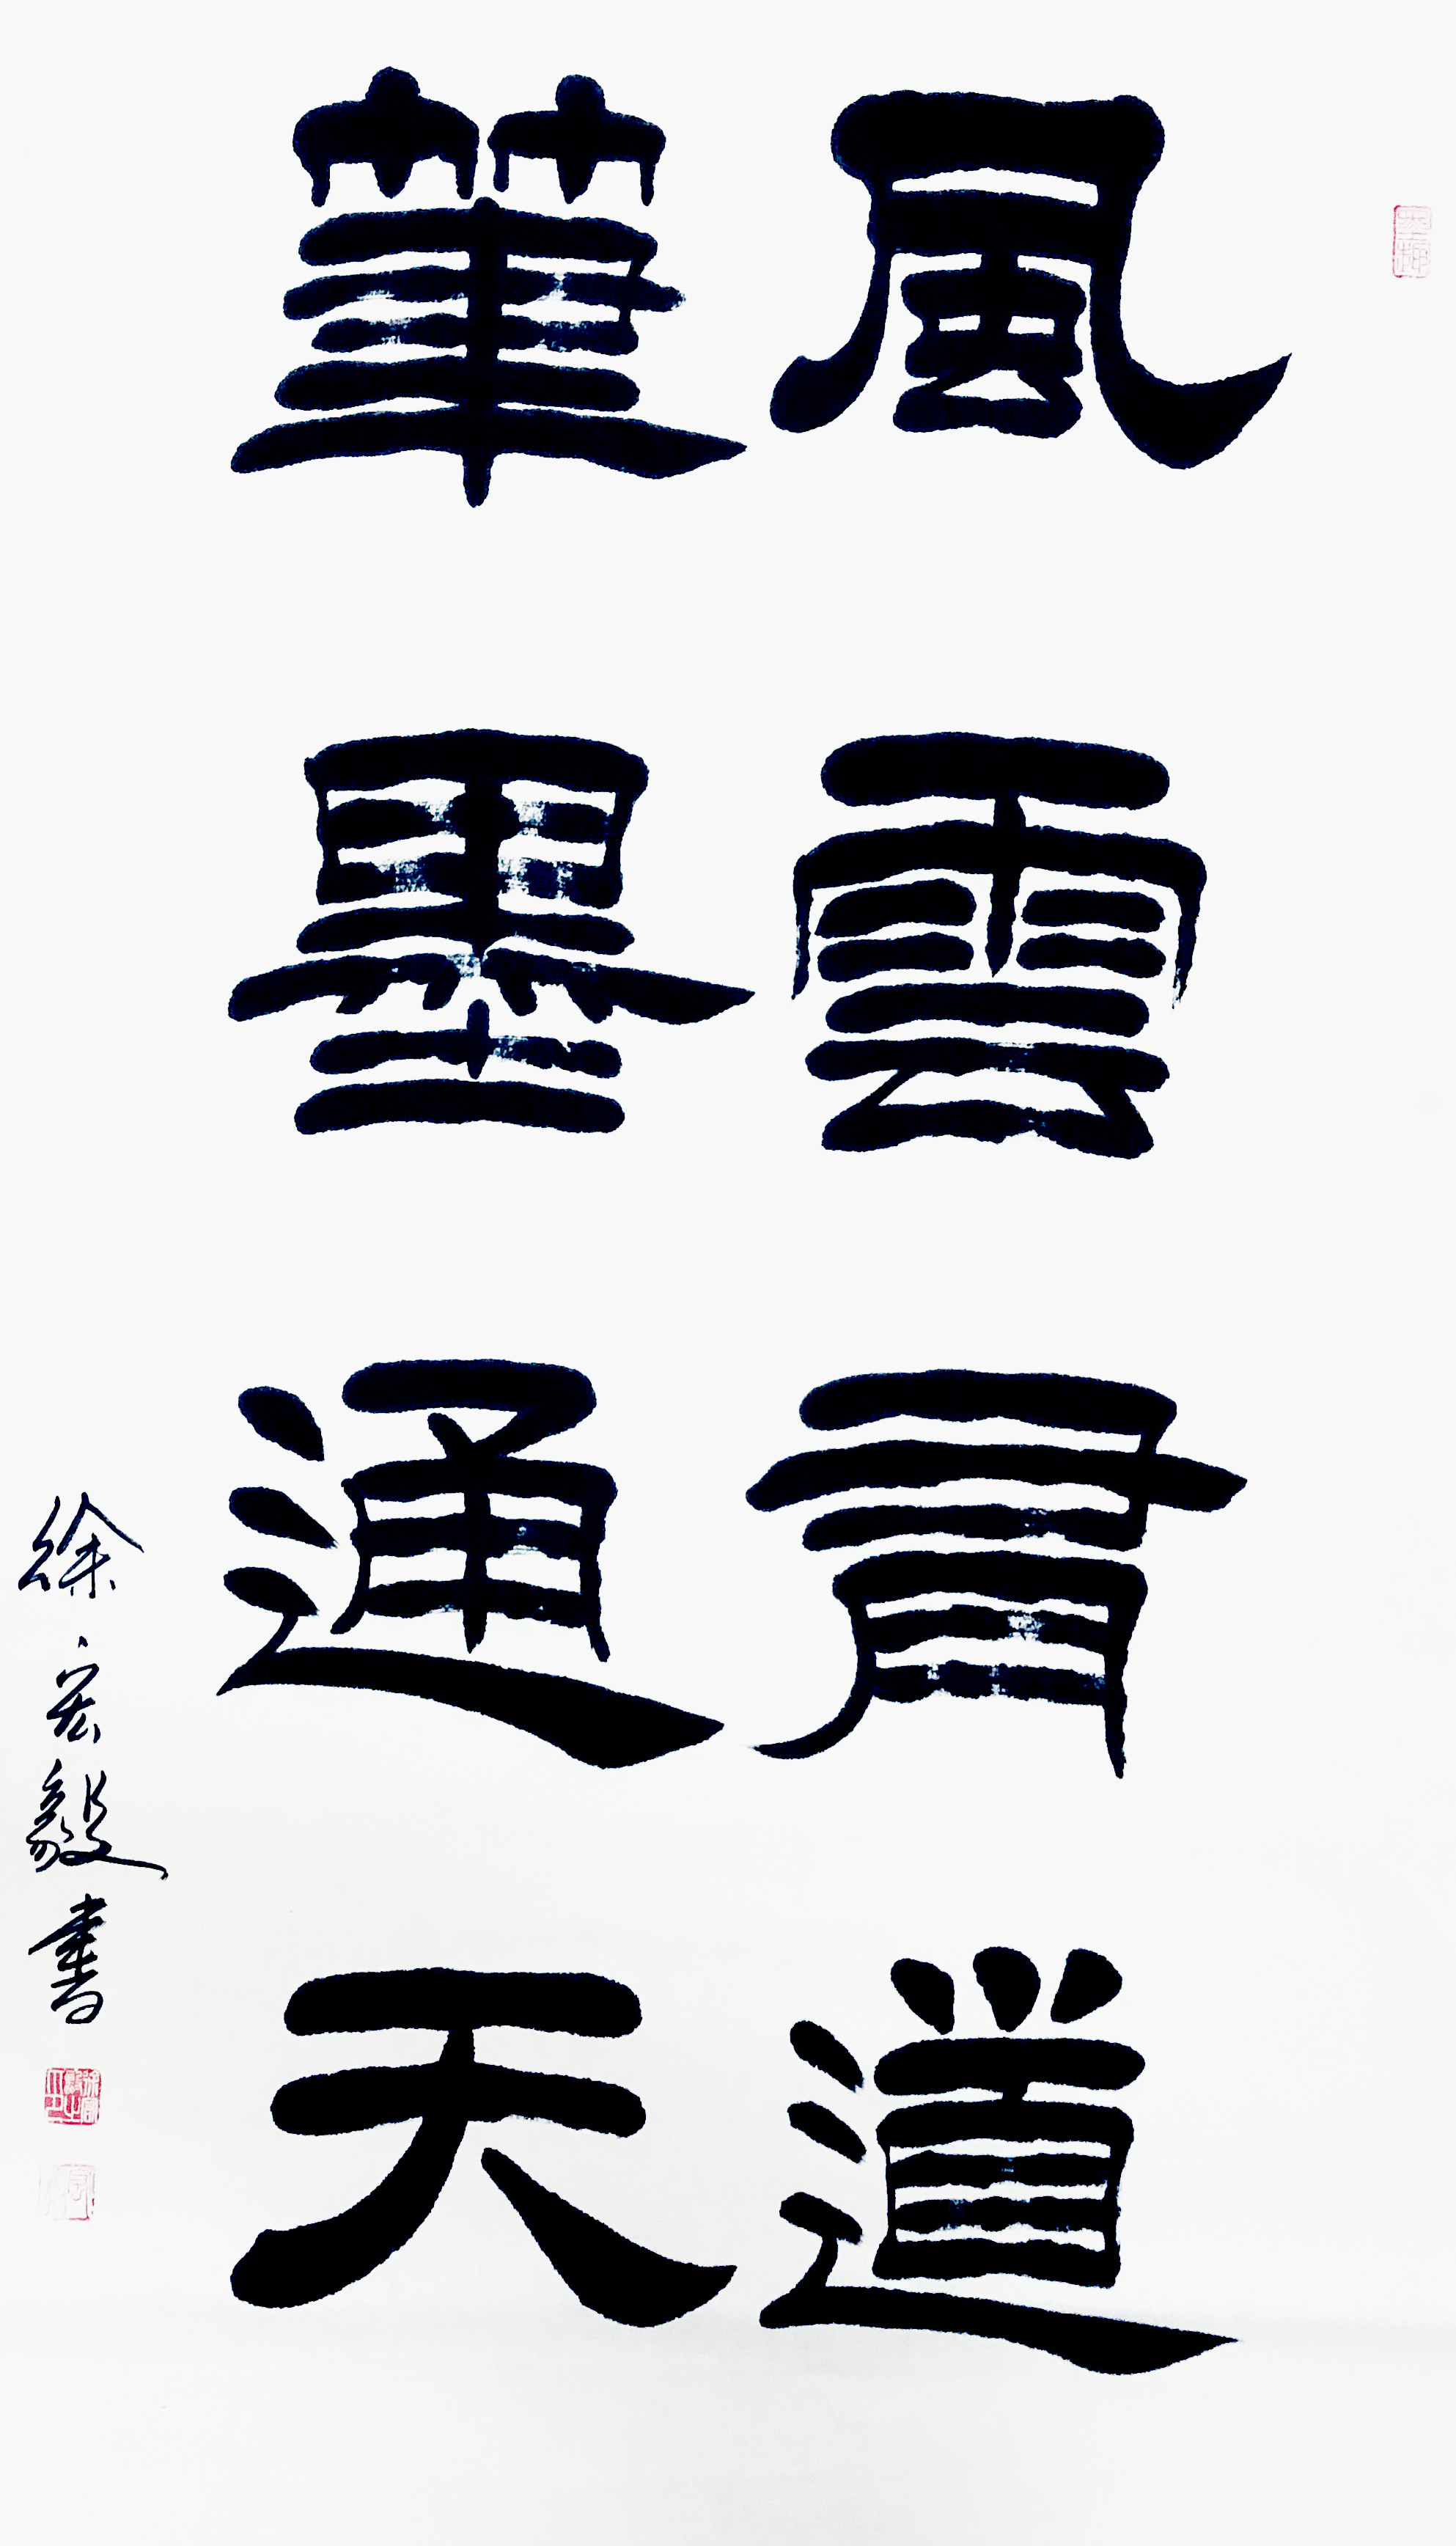 風雲肩道
筆墨通天
徐宏毅書